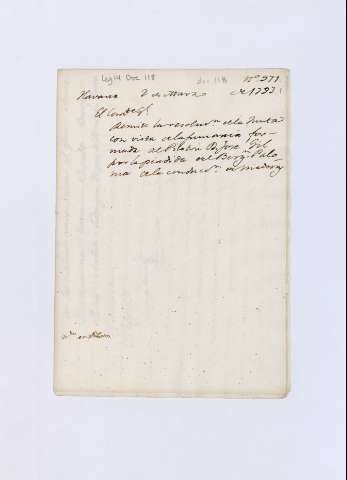 Leg 14 Doc 118 doc 118 Nº 971
Havana 2 de Marzo de 1793
El Comte Gl
Remite la resoluon de la Junta
con vista de la sumaria for-
mada al Piloto Dn Jose Gil
por la perdida del Bergn Palo-
ma de la conduccn de maderas